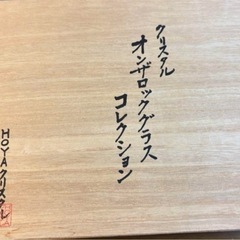 クリスタル
オンザロックグラス
コレクション
HOYAクリスタル